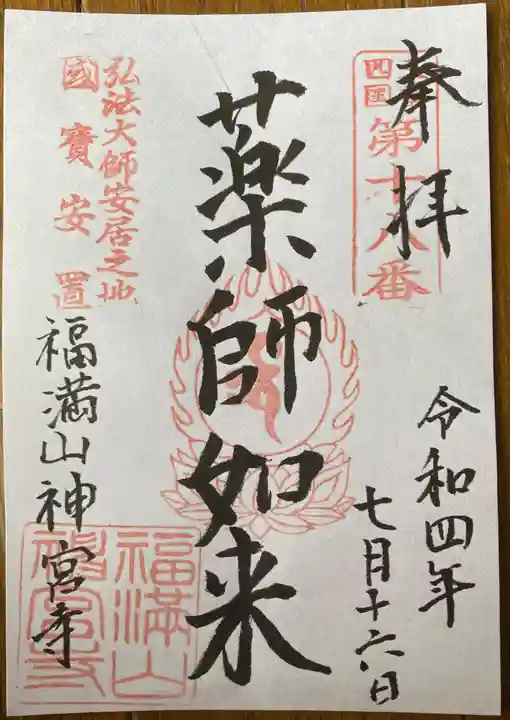 奉拝
四国
第十八番
令和四年
七月十六日
薬師如来
弘法大師安居之地
國寳安置
福満山神宮寺
福満山
神宮寺